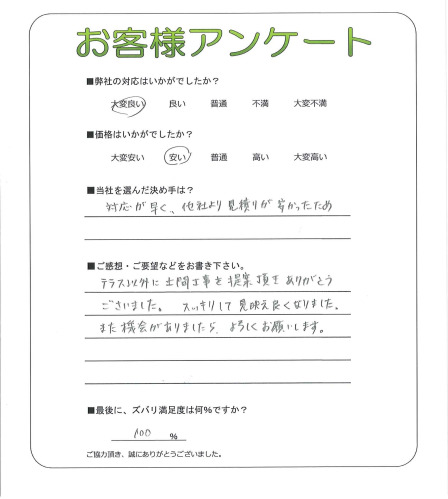 お客様アンケート
■弊社の対応はいかがでしたか?
大変良い 良い 普通 不満 大変不満
■価格はいかがでしたか?
大変安い 安い 普通 高い 大変高い
■当社を選んだ決め手は?
対応が早く、他社より見積りが安かったため
■ご感想・ご要望などをお書き下さい。
テラス以外に土間工事を提案頂きありがとう
ございました。スッキリして見映え良くなりました。
また機会がありましたら、よろしくお願いします。
■最後に、ズバリ満足度は何%ですか?
100 %
ご協力頂き、誠にありがとうございました。